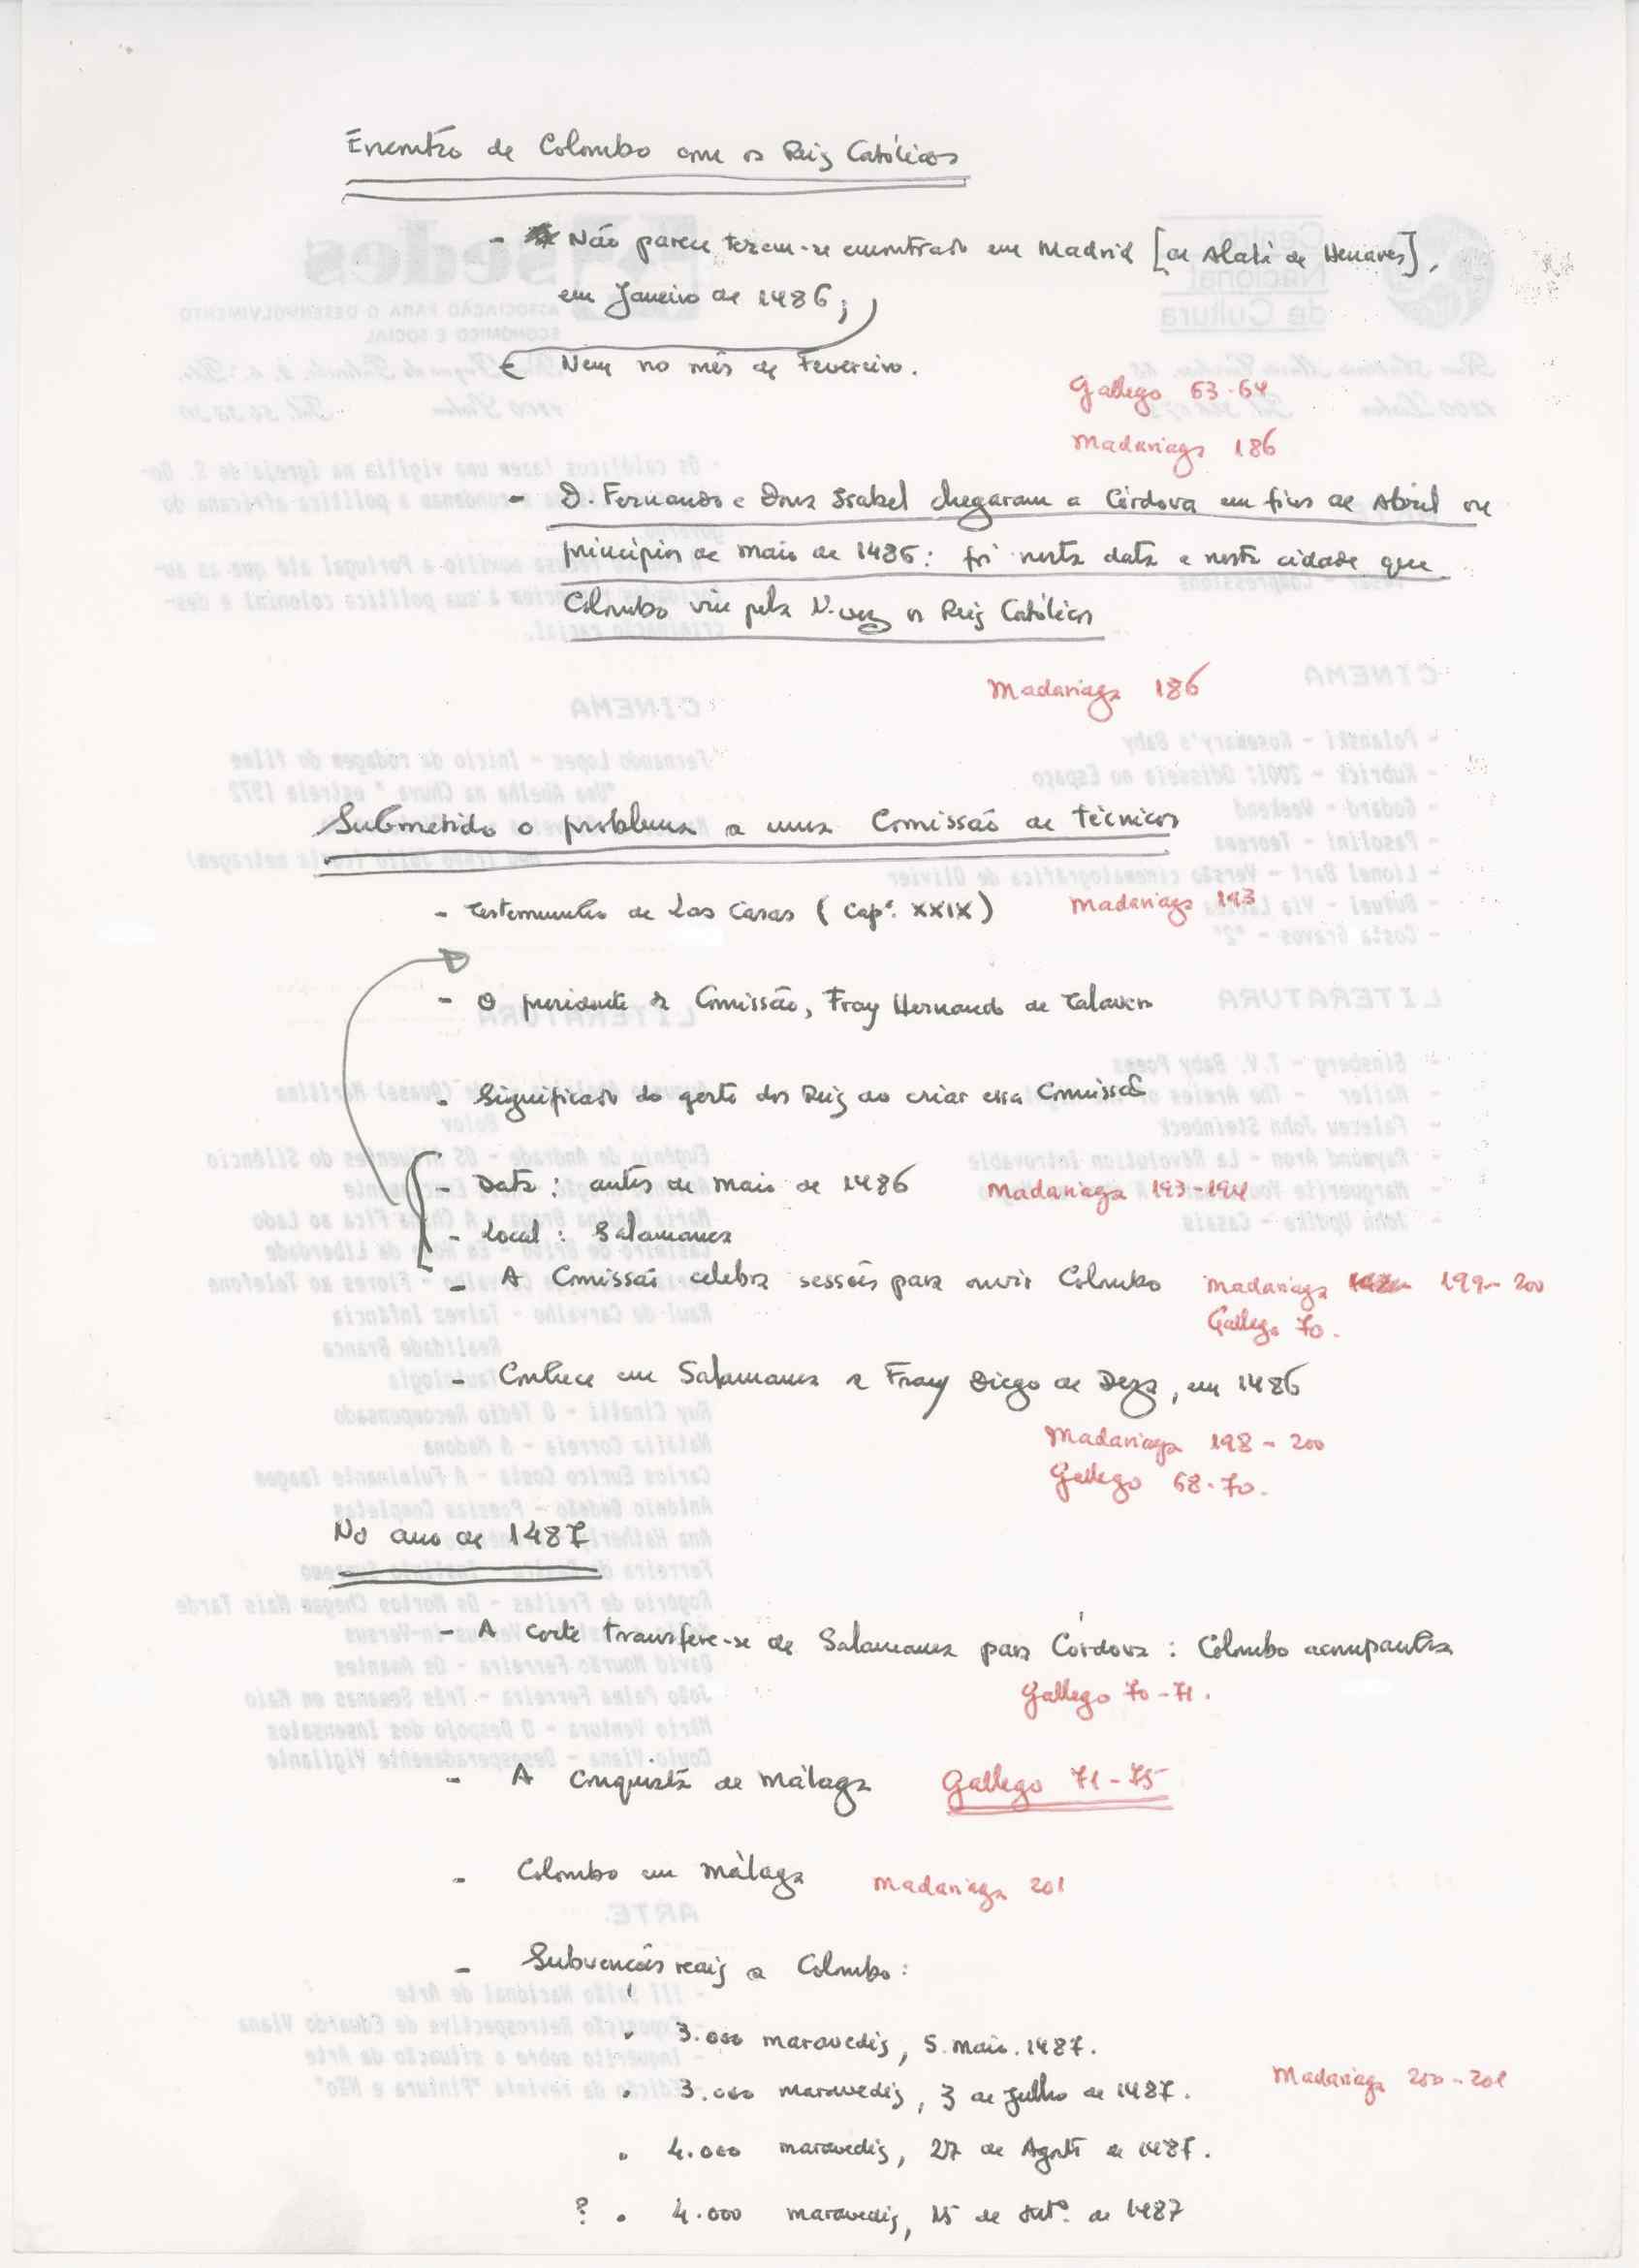 Encontro de Colombo com os Reis Católicos
- Não parece terem-se encontrado em Madrid [ou Alcalá de Henares],
em Janeiro de 1486;
Nem no mês de Fevereiro.
Gallego 63-64
Madariaga 186
- D. Fernando e Dona Isabel chegaram a Córdova em fins de Abril ou
princípios de Maio de 1486: foi nesta data e nesta cidade que
Colombo viu pela 1ª vez os Reis Católicos
Madariaga 186
Submetido o problema a uma Comissão de técnicos
- Testemunho de Las Casas (Capº. XXIX) Madariaga 193
- O presidente da Comissão, Fray Hernando de Talavera
- Significado do gesto dos Reis ao criar essa Comissão
- Data: antes de Maio de 1486 Madariaga 193-194
- Local: Salamanca
- A Comissão celebra sessões para ouvir Colombo Madariaga 199-200
Gallego 70.
- Conhece em Salamanca a Fray Diego de Deza, em 1486
Madariaga 198-200
Gallego 68-70.
No ano de 1487
- A corte transfere-se de Salamanca para Córdova: Colombo acompanha
Gallego 70-71.
- A conquista de Málaga Gallego 71-75
- Colombo em Málaga Madariaga 201
- Subvenções reais a Colombo:
. 3.000 maravedis, 5.Maio.1487.
. 3.000 maravedis, 3 de Julho de 1487. Madariaga 200-201
. 4.000 maravedis, 27 de Agosto de 1487.
? . 4.000 maravedis, 15 de Setº. de 1487